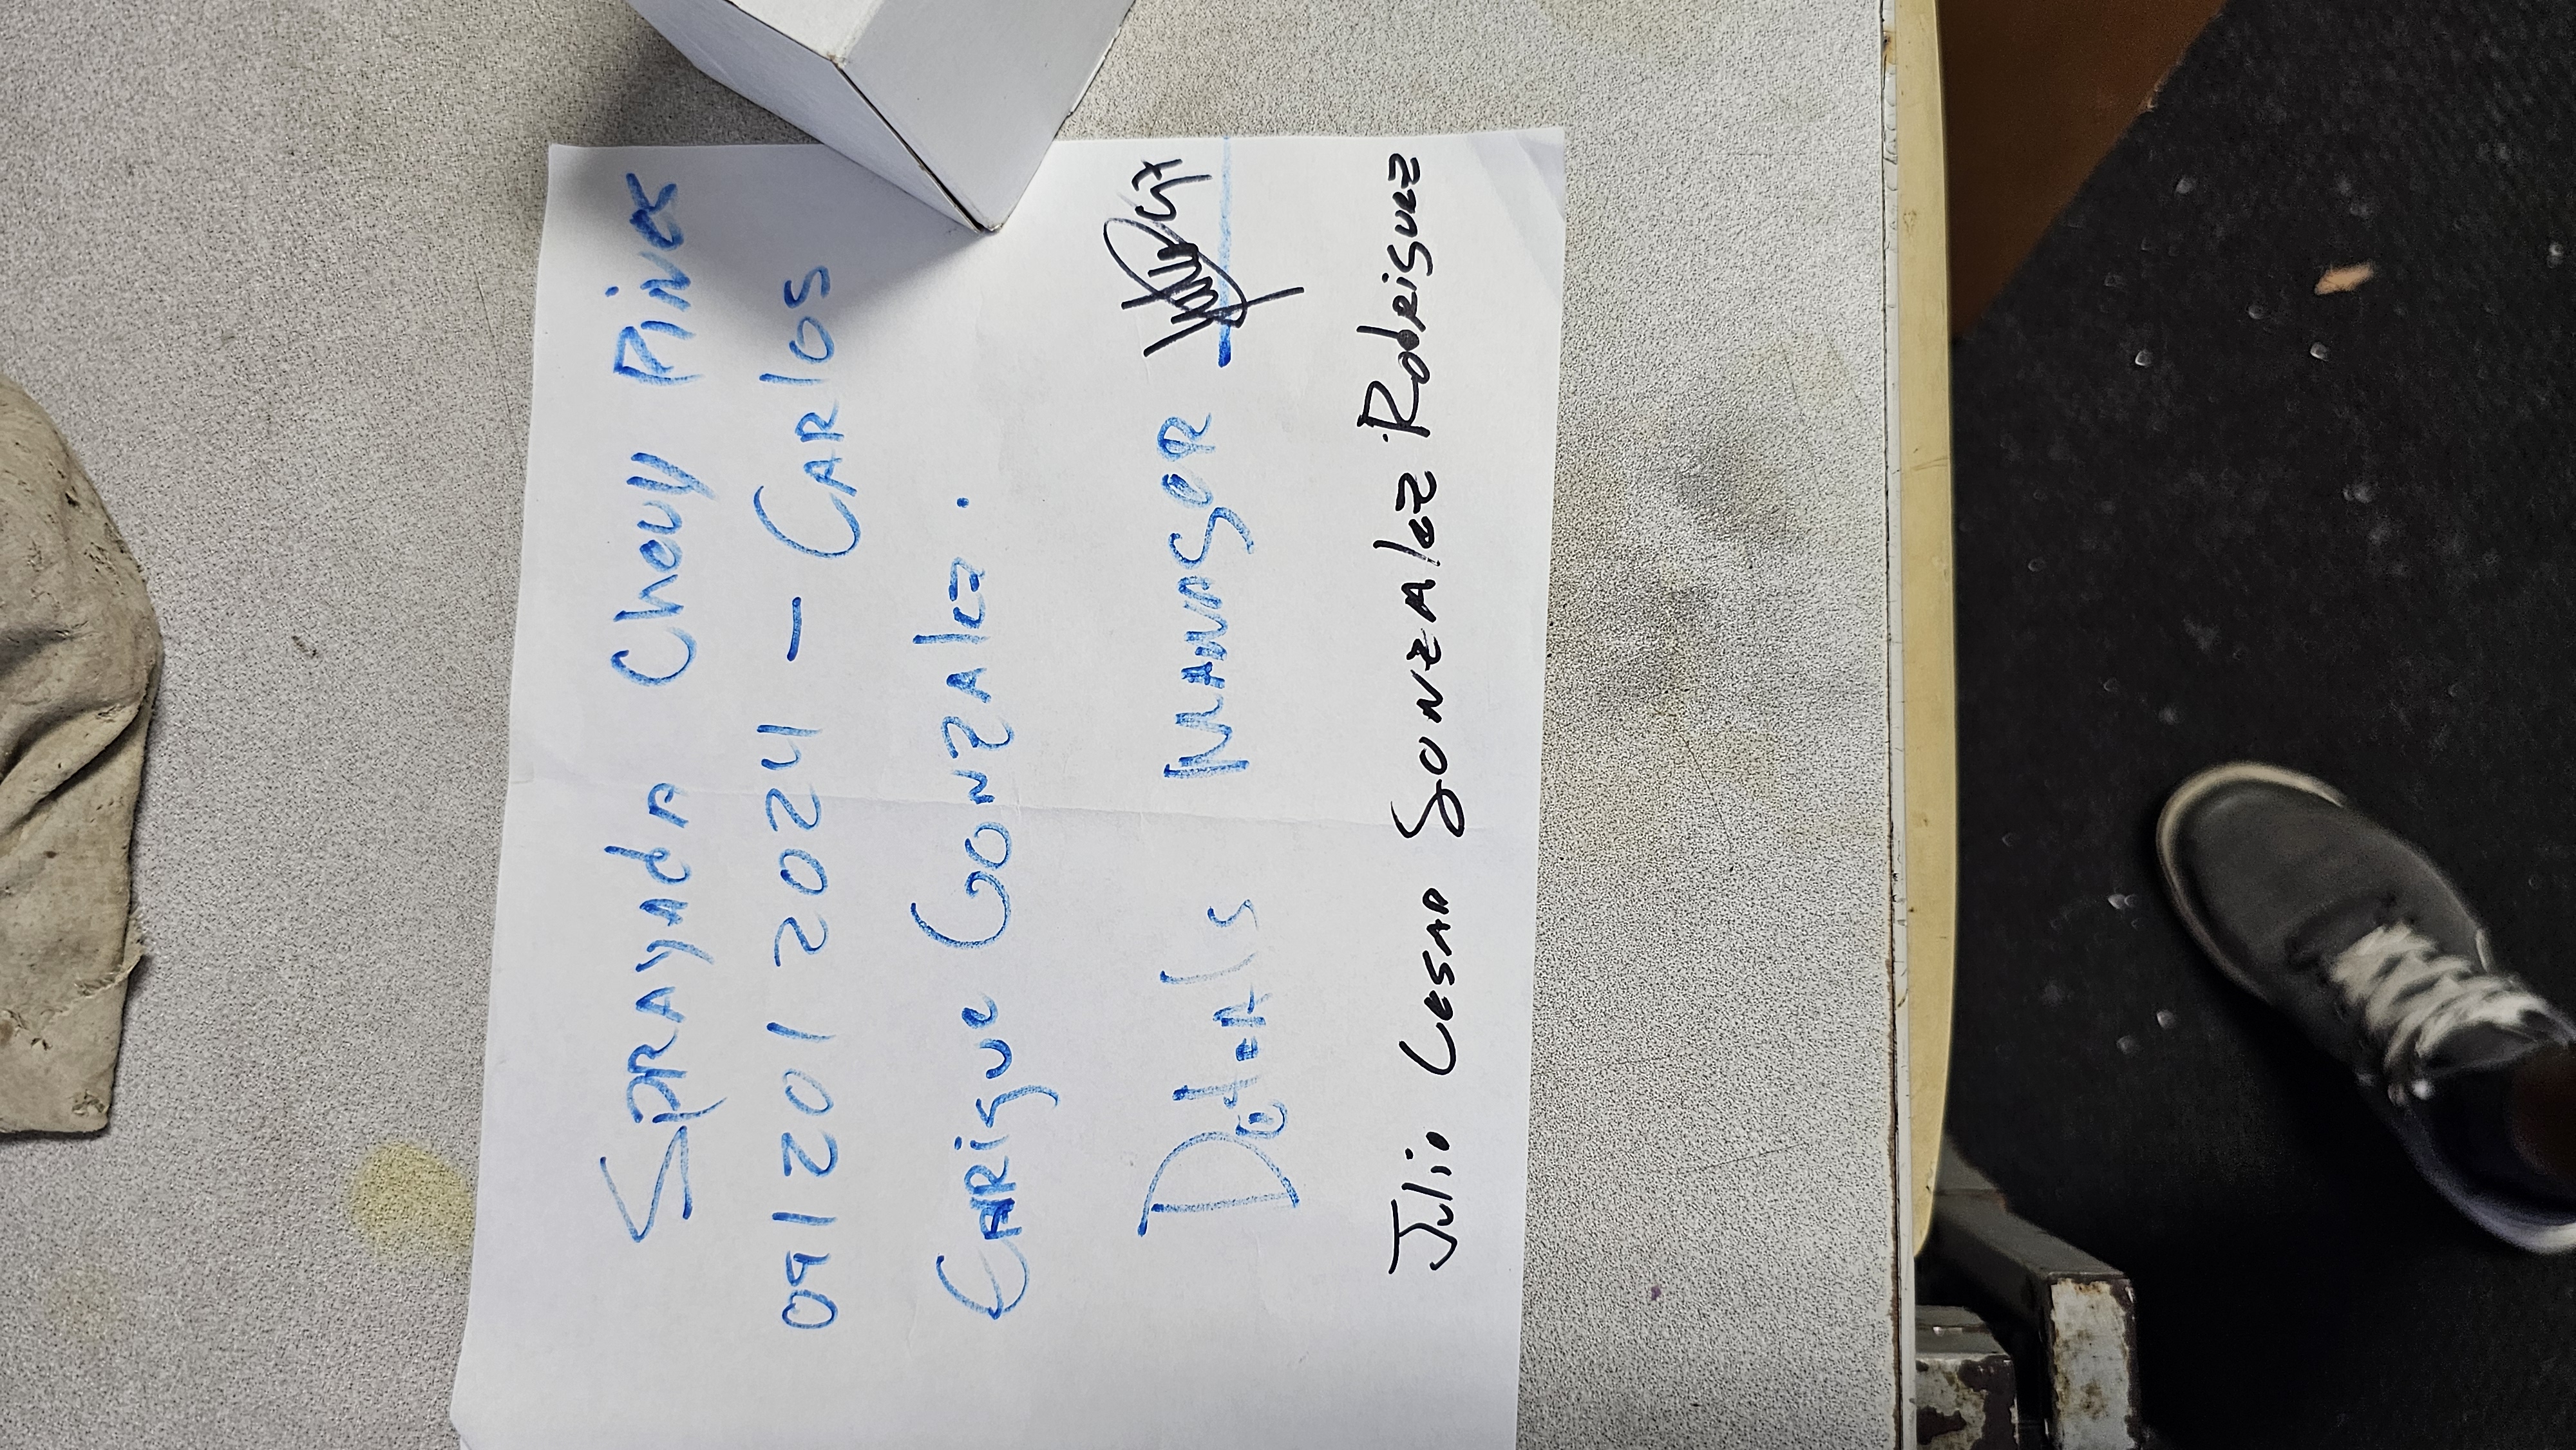 SPRAYADA Chevy Pines
09 / 20 / 2024 - CARlos
ENRique GONZAlez.
Details MANAGER
Julio Cesar GONZAlez RodRiguez